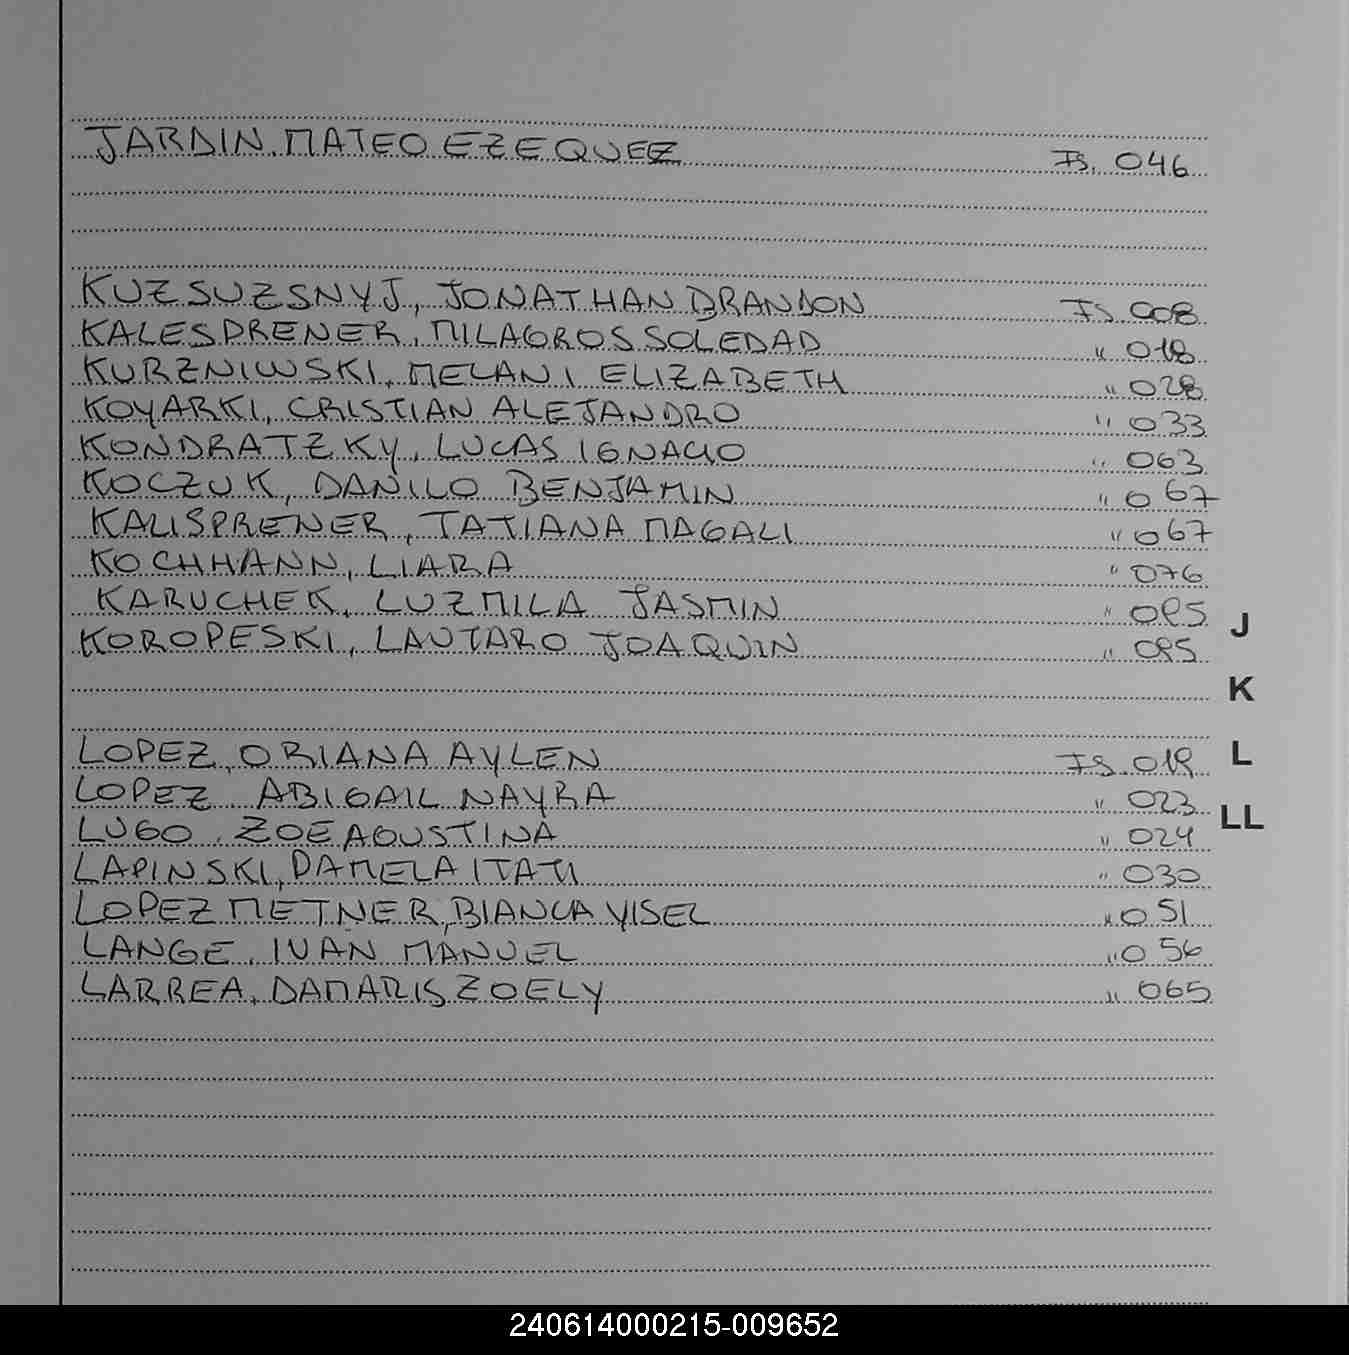 JARDIN. MATEO EZEQUEZ FS. 046
KUZSUZSNYJ, JONATHAN BRANDON FS 008
KALESPRENER, MILAGROS SOLEDAD " 018
KURZNIWSKI, MELANI ELIZABETH " 028
KOYARKI, CRISTIAN ALEJANDRO " 033
KONDRATZKY, LUCAS IGNACIO " 063
KOCZUK, DANILO BENJAMIN " 067
KALISPRENER, TATIANA MAGALI " 067
KOCHHANN, LIARA " 076
KARUCHEK, LUZMILA JASMIN "
KOROPESKI, LAUTARO JOAQUIN "
J
K
LOPEZ, ORIANA AYLEN FS. 019
L
LOPEZ ABIGAIL NAYRA " 023
LL
LUGO, ZOE AGUSTINA " 024
LAPINSKI, PAMELA ITATI " 030
LOPEZ METNER, BIANCA YISEL " 051
LANGE, IVAN MANUEL " 056
LARREA, DAMARIS ZOELY " 065
240614000215-009652